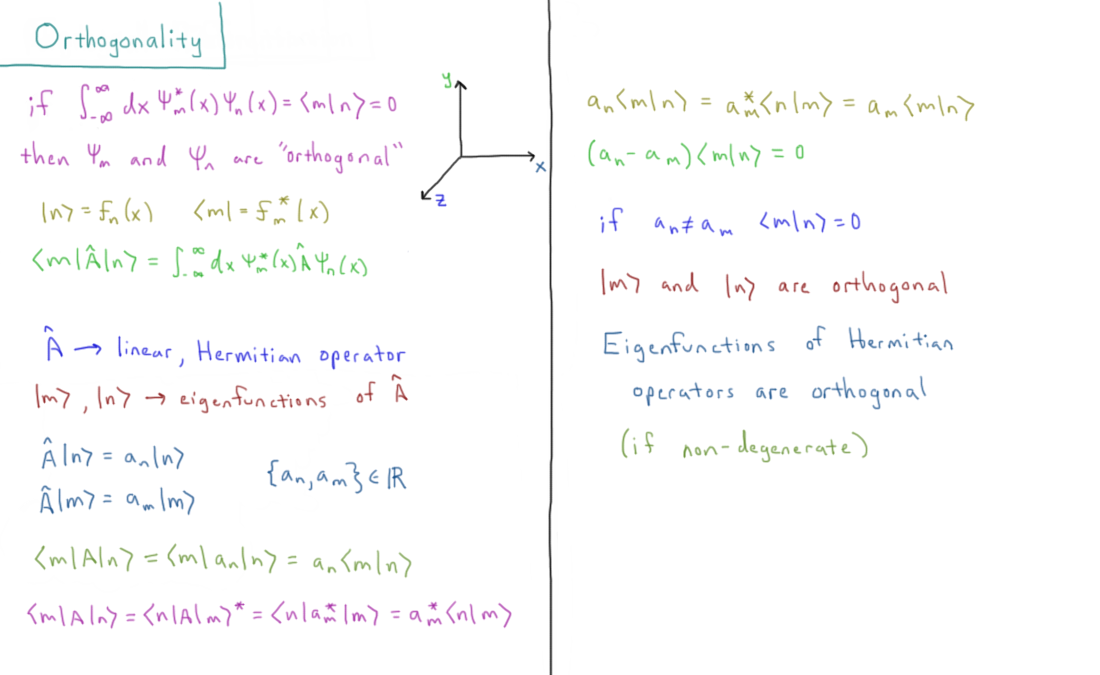 Orthogonality
if ∫_{-∞}^{∞} dx Ψ_m^*(x) Ψ_n(x) = ⟨m|n⟩ = 0
then Ψ_m and Ψ_n are "orthogonal"
y
x
z
|n⟩ = f_n(x) ⟨m| = f_m^*(x)
⟨m|Â|n⟩ = ∫_{-∞}^{∞} dx Ψ_m^*(x) Â Ψ_n(x)
Â → linear, Hermitian operator
|m⟩, |n⟩ → eigenfunctions of Â
Â|n⟩ = a_n|n⟩
Â|m⟩ = a_m|m⟩
{a_n, a_m} ∈ ℝ
⟨m|A|n⟩ = ⟨m|a_n|n⟩ = a_n⟨m|n⟩
⟨m|A|n⟩ = ⟨n|A|m⟩^* = ⟨n|a_m^*|m⟩ = a_m^*⟨n|m⟩
a_n⟨m|n⟩ = a_m^*⟨n|m⟩ = a_m⟨m|n⟩
(a_n - a_m)⟨m|n⟩ = 0
if a_n ≠ a_m ⟨m|n⟩ = 0
|m⟩ and |n⟩ are orthogonal
Eigenfunctions of Hermitian
operators are orthogonal
(if non-degenerate)